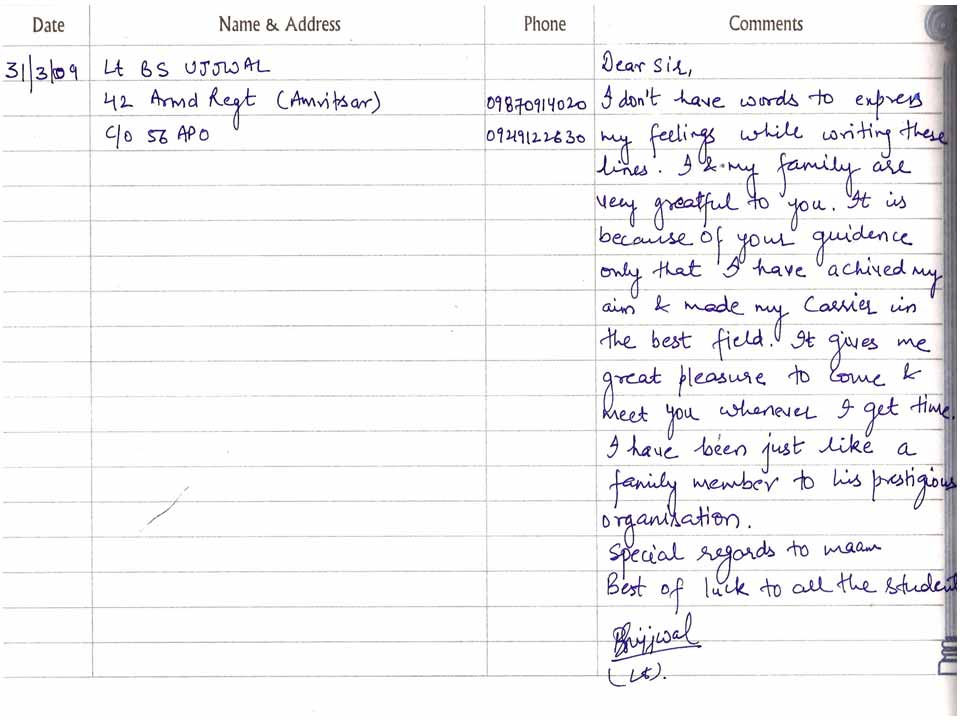 Date Name & Address Phone Comments
31/3/09 Lt BS UJJWAL Dear Sir,
42 Armd Regt (Amritsar) 09870914020 I don't have words to express
C/O 56 APO 09419122630 my feelings while writing these
lines. I & my family are
very greatful to you. It is
because of your guidence
only that I have achived my
aim & made my Carrier in
the best field. It gives me
great pleasure to come &
meet you whenever I get time.
I have been just like a
family member to his prestigious
organisation.
Special regards to maam
Best of luck to all the student
(Lt).